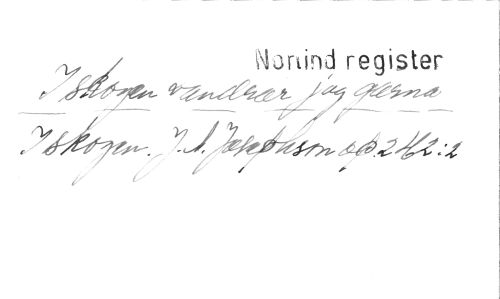 Norlind register
I skogen vandrar jag gärna
I skogen. J. A. Josephson op. 2 H2:2